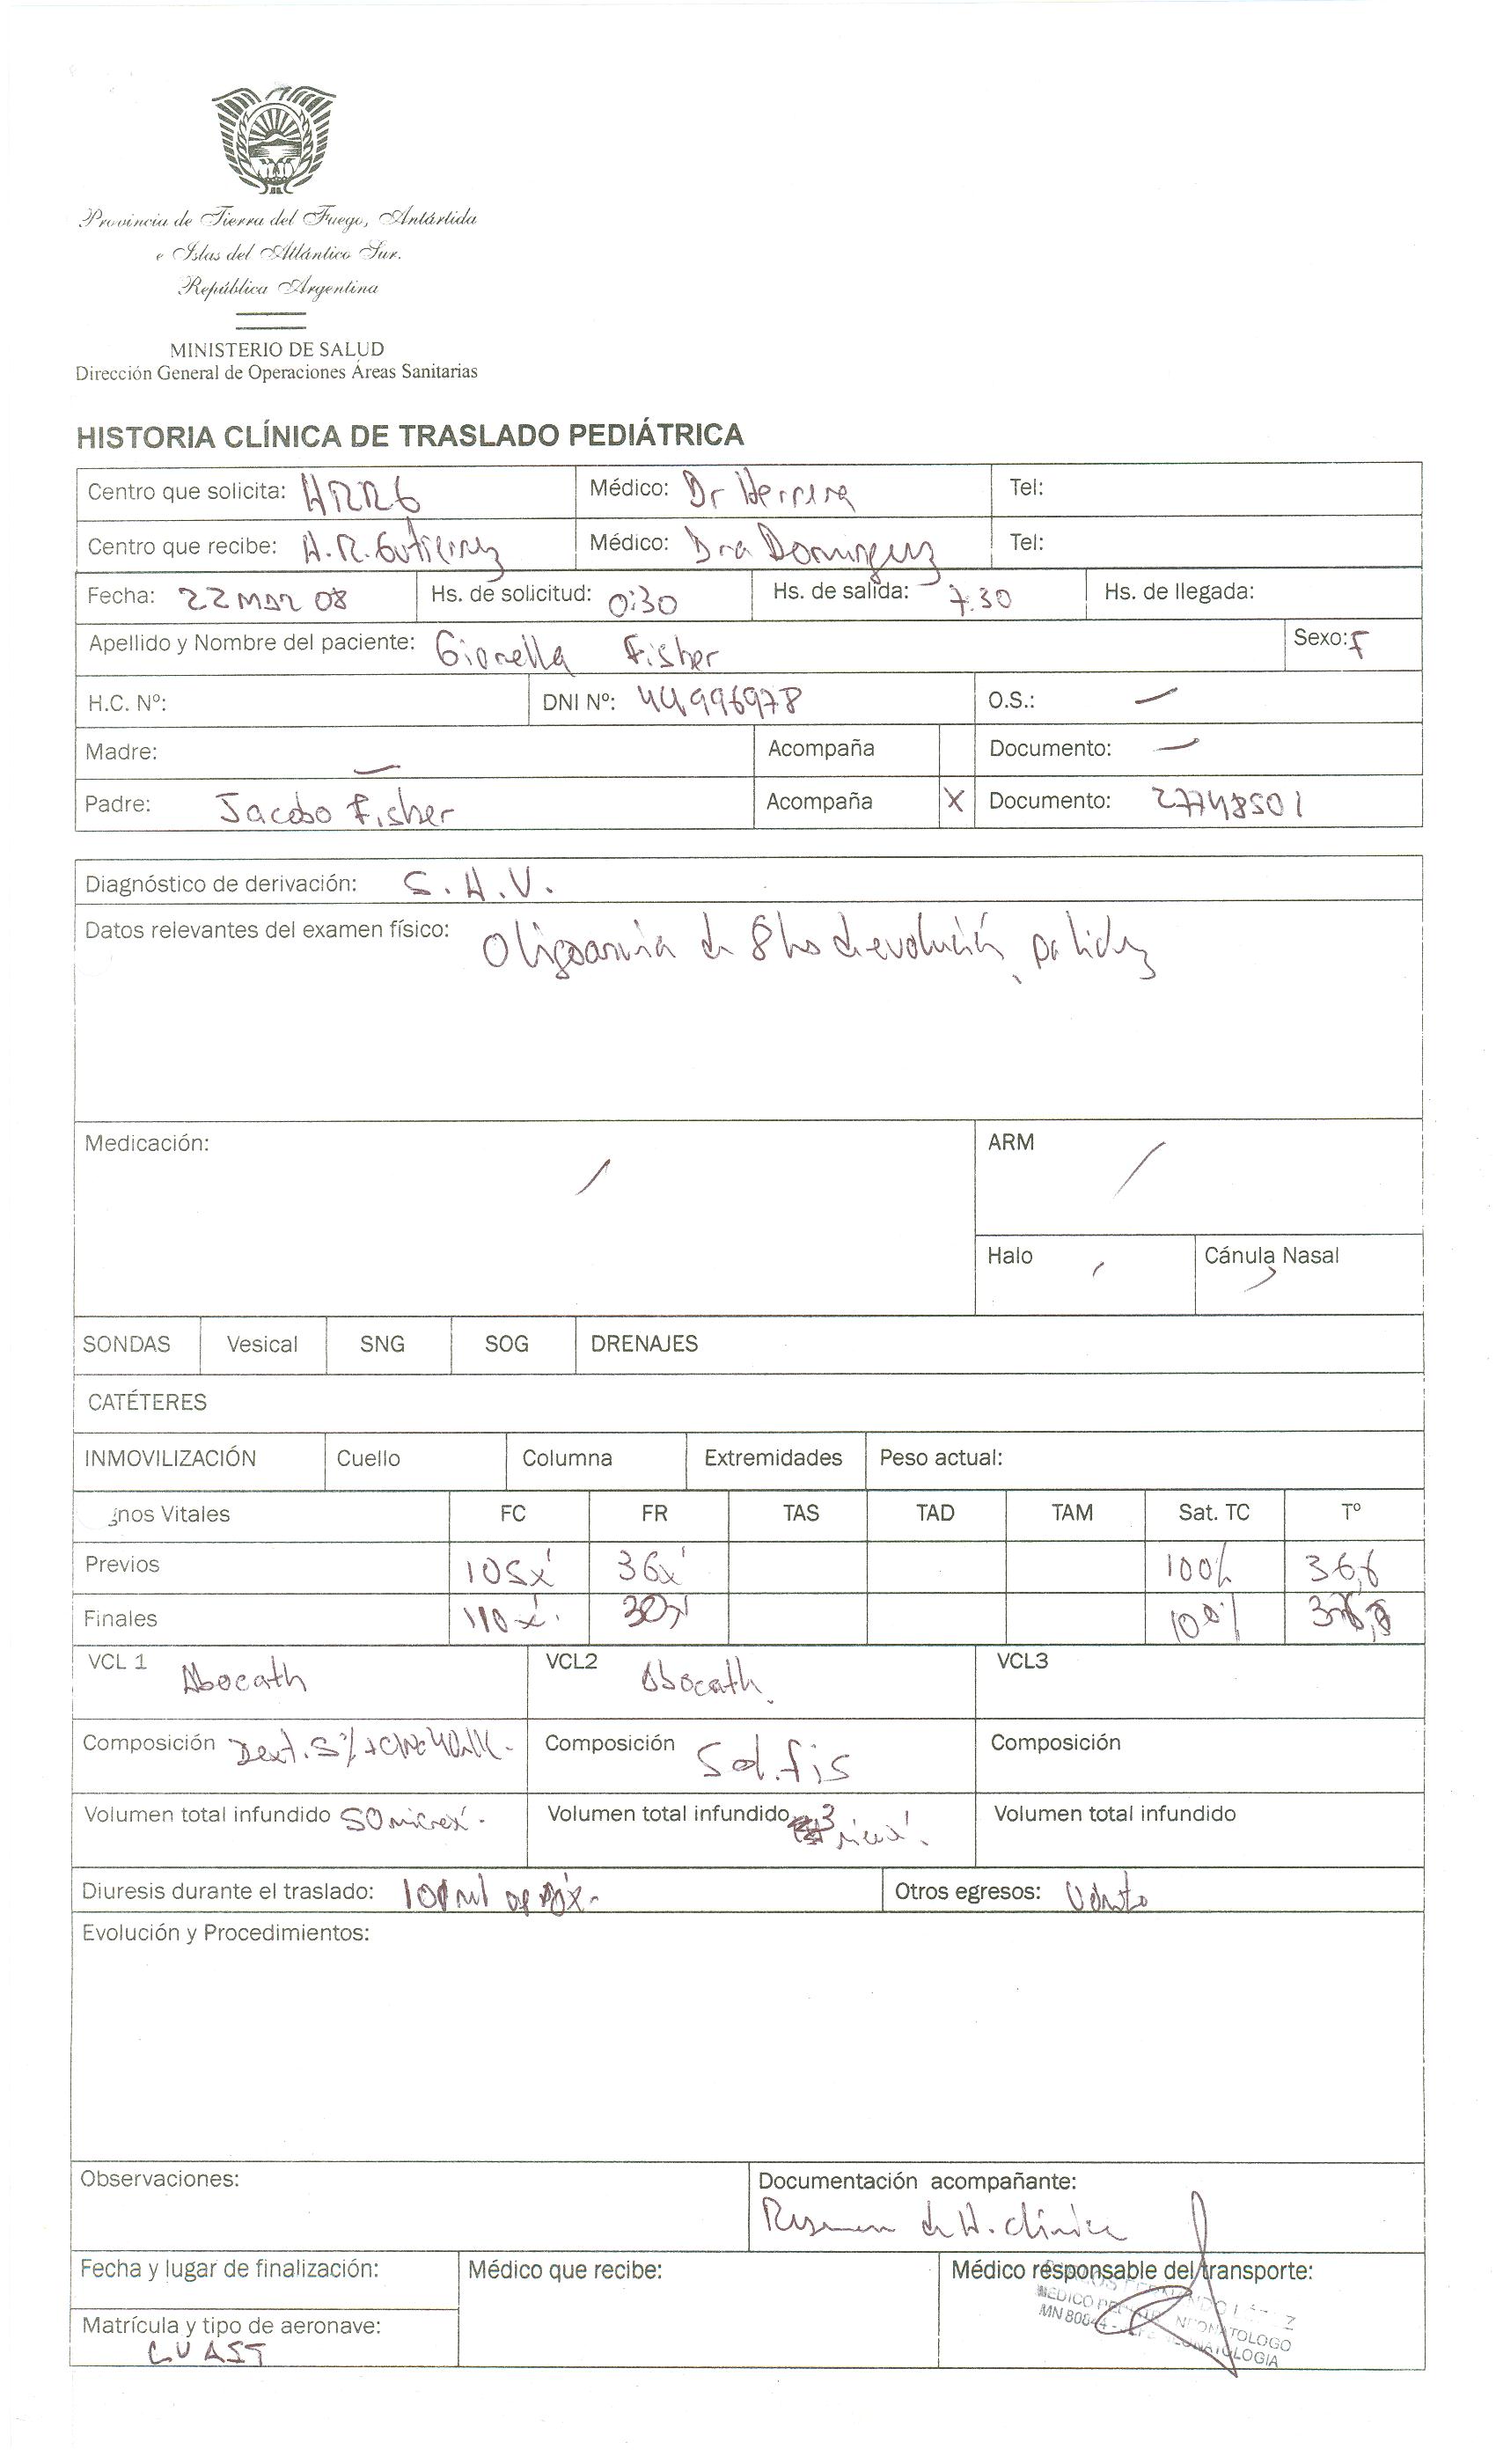 Provincia de Tierra del Fuego, Antártida
e Islas del Atlántico Sur.
República Argentina
MINISTERIO DE SALUD
Dirección General de Operaciones Áreas Sanitarias
HISTORIA CLÍNICA DE TRASLADO PEDIÁTRICA
Centro que solicita: HRRG Médico: Dr Herrera Tel:
Centro que recibe: H.R. Gutierrez Médico: Dra Dominguez Tel:
Fecha: 22 MAR 08 Hs. de solicitud: 0:30 Hs. de salida: 7.30 Hs. de llegada:
Apellido y Nombre del paciente: Gionella Fisher Sexo: F
H.C. Nº: DNI Nº: 44996978 O.S.: —
Madre: — Acompaña Documento: —
Padre: Jacobo Fisher Acompaña X Documento: 27748501
Diagnóstico de derivación: S.H.V.
Datos relevantes del examen físico: Oligoanuria de 8 hs de evolución, palidez
Medicación: / ARM /
Halo / Cánula Nasal /
SONDAS Vesical SNG SOG DRENAJES
CATÉTERES
INMOVILIZACIÓN Cuello Columna Extremidades Peso actual:
gnos Vitales FC FR TAS TAD TAM Sat. TC Tº
Previos 105x' 36x' 100% 36,6
Finales 110x'. 30x' 100%
VCL 1 Abocath VCL2 Abocath. VCL3
Composición Dext. 5% + Composición Sol. fis Composición
Volumen total infundido 50 microx'. Volumen total infundido 3 Volumen total infundido
Diuresis durante el traslado: 100 ml aprox. Otros egresos:
Evolución y Procedimientos:
Observaciones: Documentación acompañante:
Resumen de H. clínica
Fecha y lugar de finalización: Médico que recibe: Médico responsable del transporte:
Matrícula y tipo de aeronave:
LVAST
NEONATOLOGO